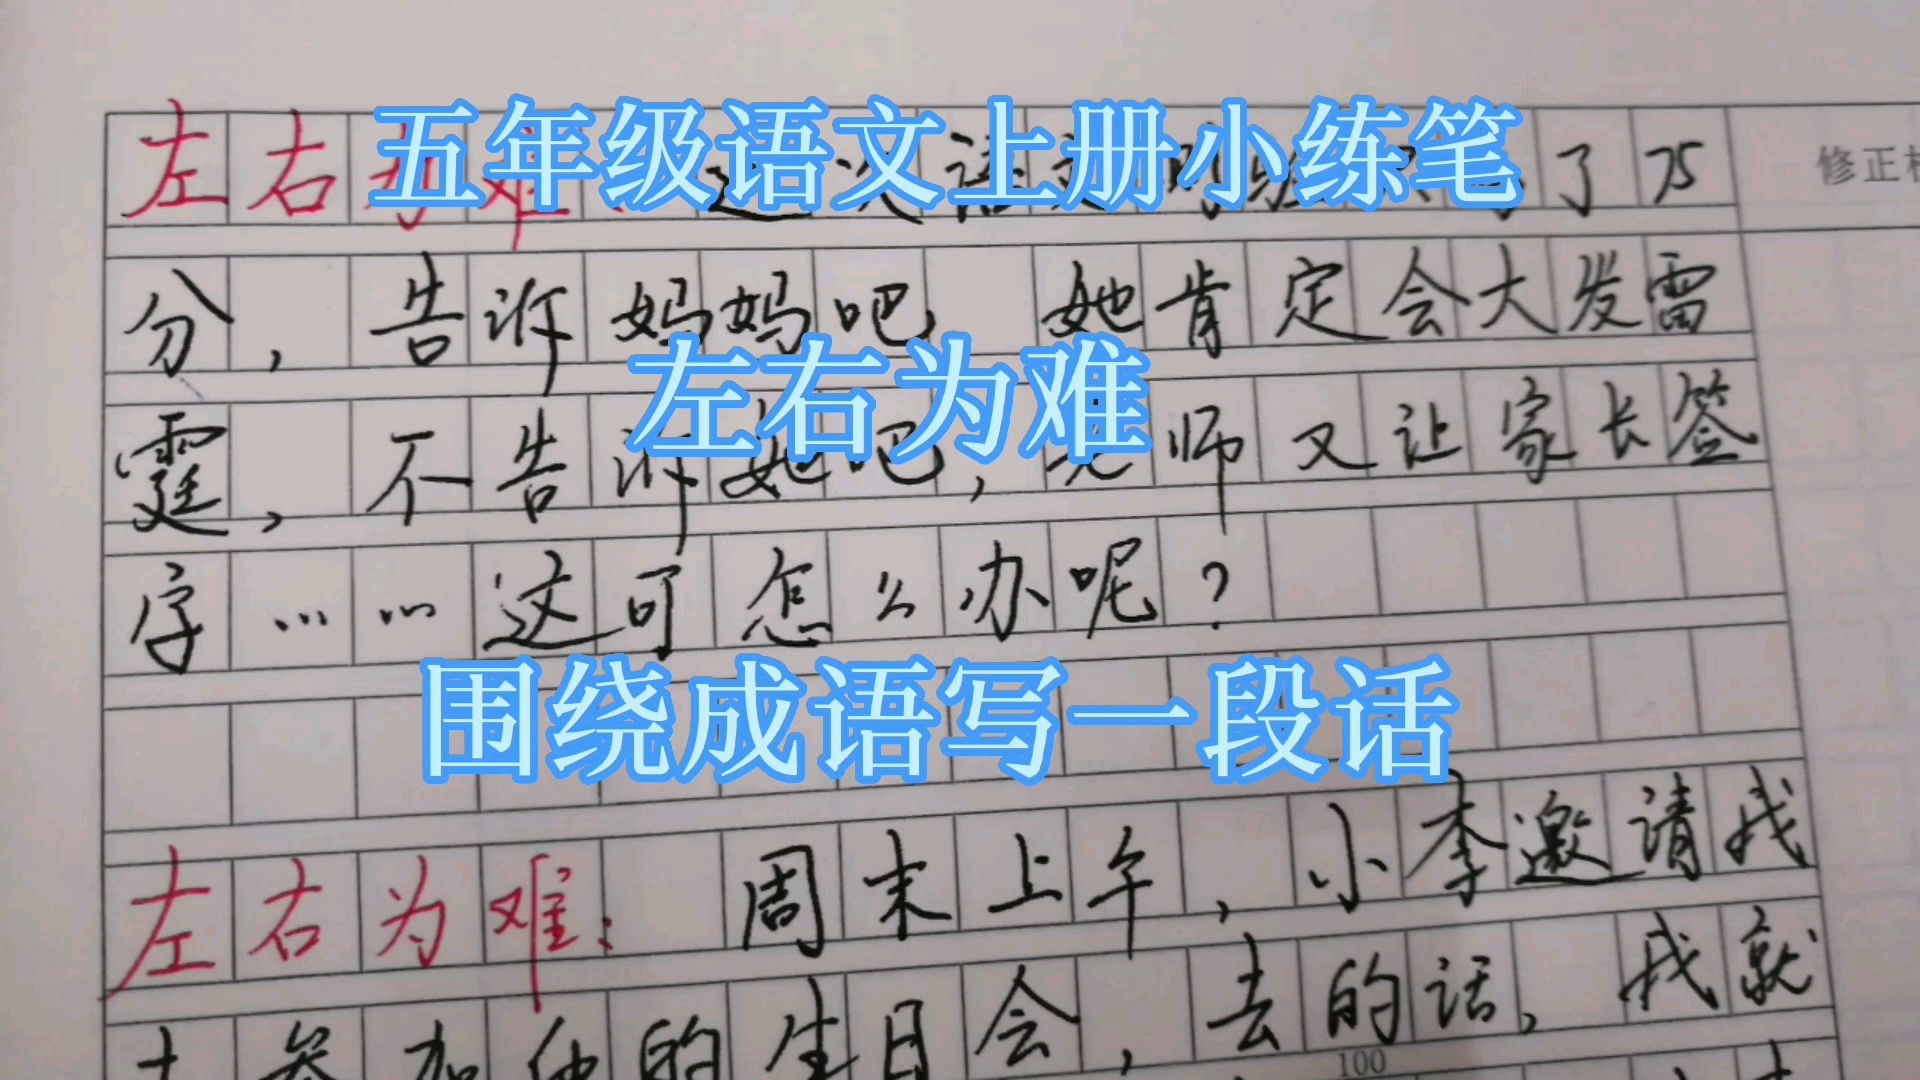 五年级语文上册小练笔
左右为难
围绕成语写一段话
修正
左右为难:这次语文 了75
分,告诉妈妈吧 她肯定会大发雷
霆,不告诉她吧,老师又让家长签
字……这可怎么办呢?
左右为难: 周末上午,小李邀请我
去参加他的生日会,去的话,我就
100